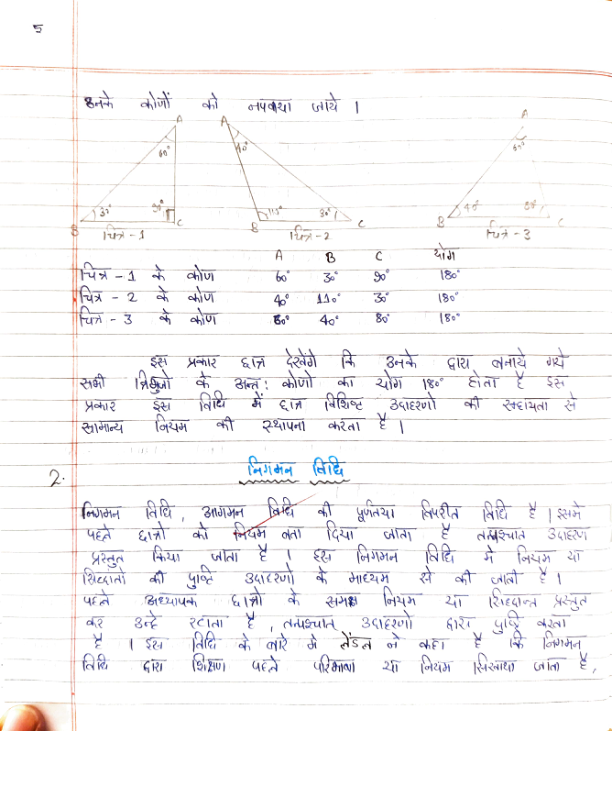 5
उनके कोणों को नपवाया जाये ।
A A A
60° 40° 60°
30° 90° 110° 30° 40° 80°
B C B C B C
चित्र - 1 चित्र - 2 चित्र - 3
A B C योग
चित्र - 1 के कोण 60° 30° 90° 180°
चित्र - 2 के कोण 40° 110° 30° 180°
चित्र - 3 के कोण 60° 40° 80° 180°
इस प्रकार छात्र देखेंगे कि उनके द्वारा बनाये गये
सभी त्रिभुजो के अन्त: कोणो का योग 180° होता है इस
प्रकार इस विधि में छात्र विशिष्ट उदाहरणो की सहायता से
सामान्य नियम की स्थापना करता है ।
2. निगमन विधि
निगमन विधि, आगमन विधि की पूर्णतया विपरीत विधि है । इसमे
पहले छात्रो को नियम बता दिया जाता है तत्पश्चात उदाहरण
प्रस्तुत किया जाता है । इस निगमन विधि मे नियम या
सिद्दातो की पुष्टि उदाहरणो के माध्यम से की जाती है ।
पहले अध्यापक छात्रो के समक्ष नियम या सिद्दान्त प्रस्तुत
कर उन्हे रटाता है, तत्पश्चात् उदाहरणो द्वारा पुष्टि करता
है । इस विधि के बारे मे लेंडल ने कहा है कि निगमन
विधि द्वारा शिक्षण पहले परिभाषा या नियम सिखाया जाता है,